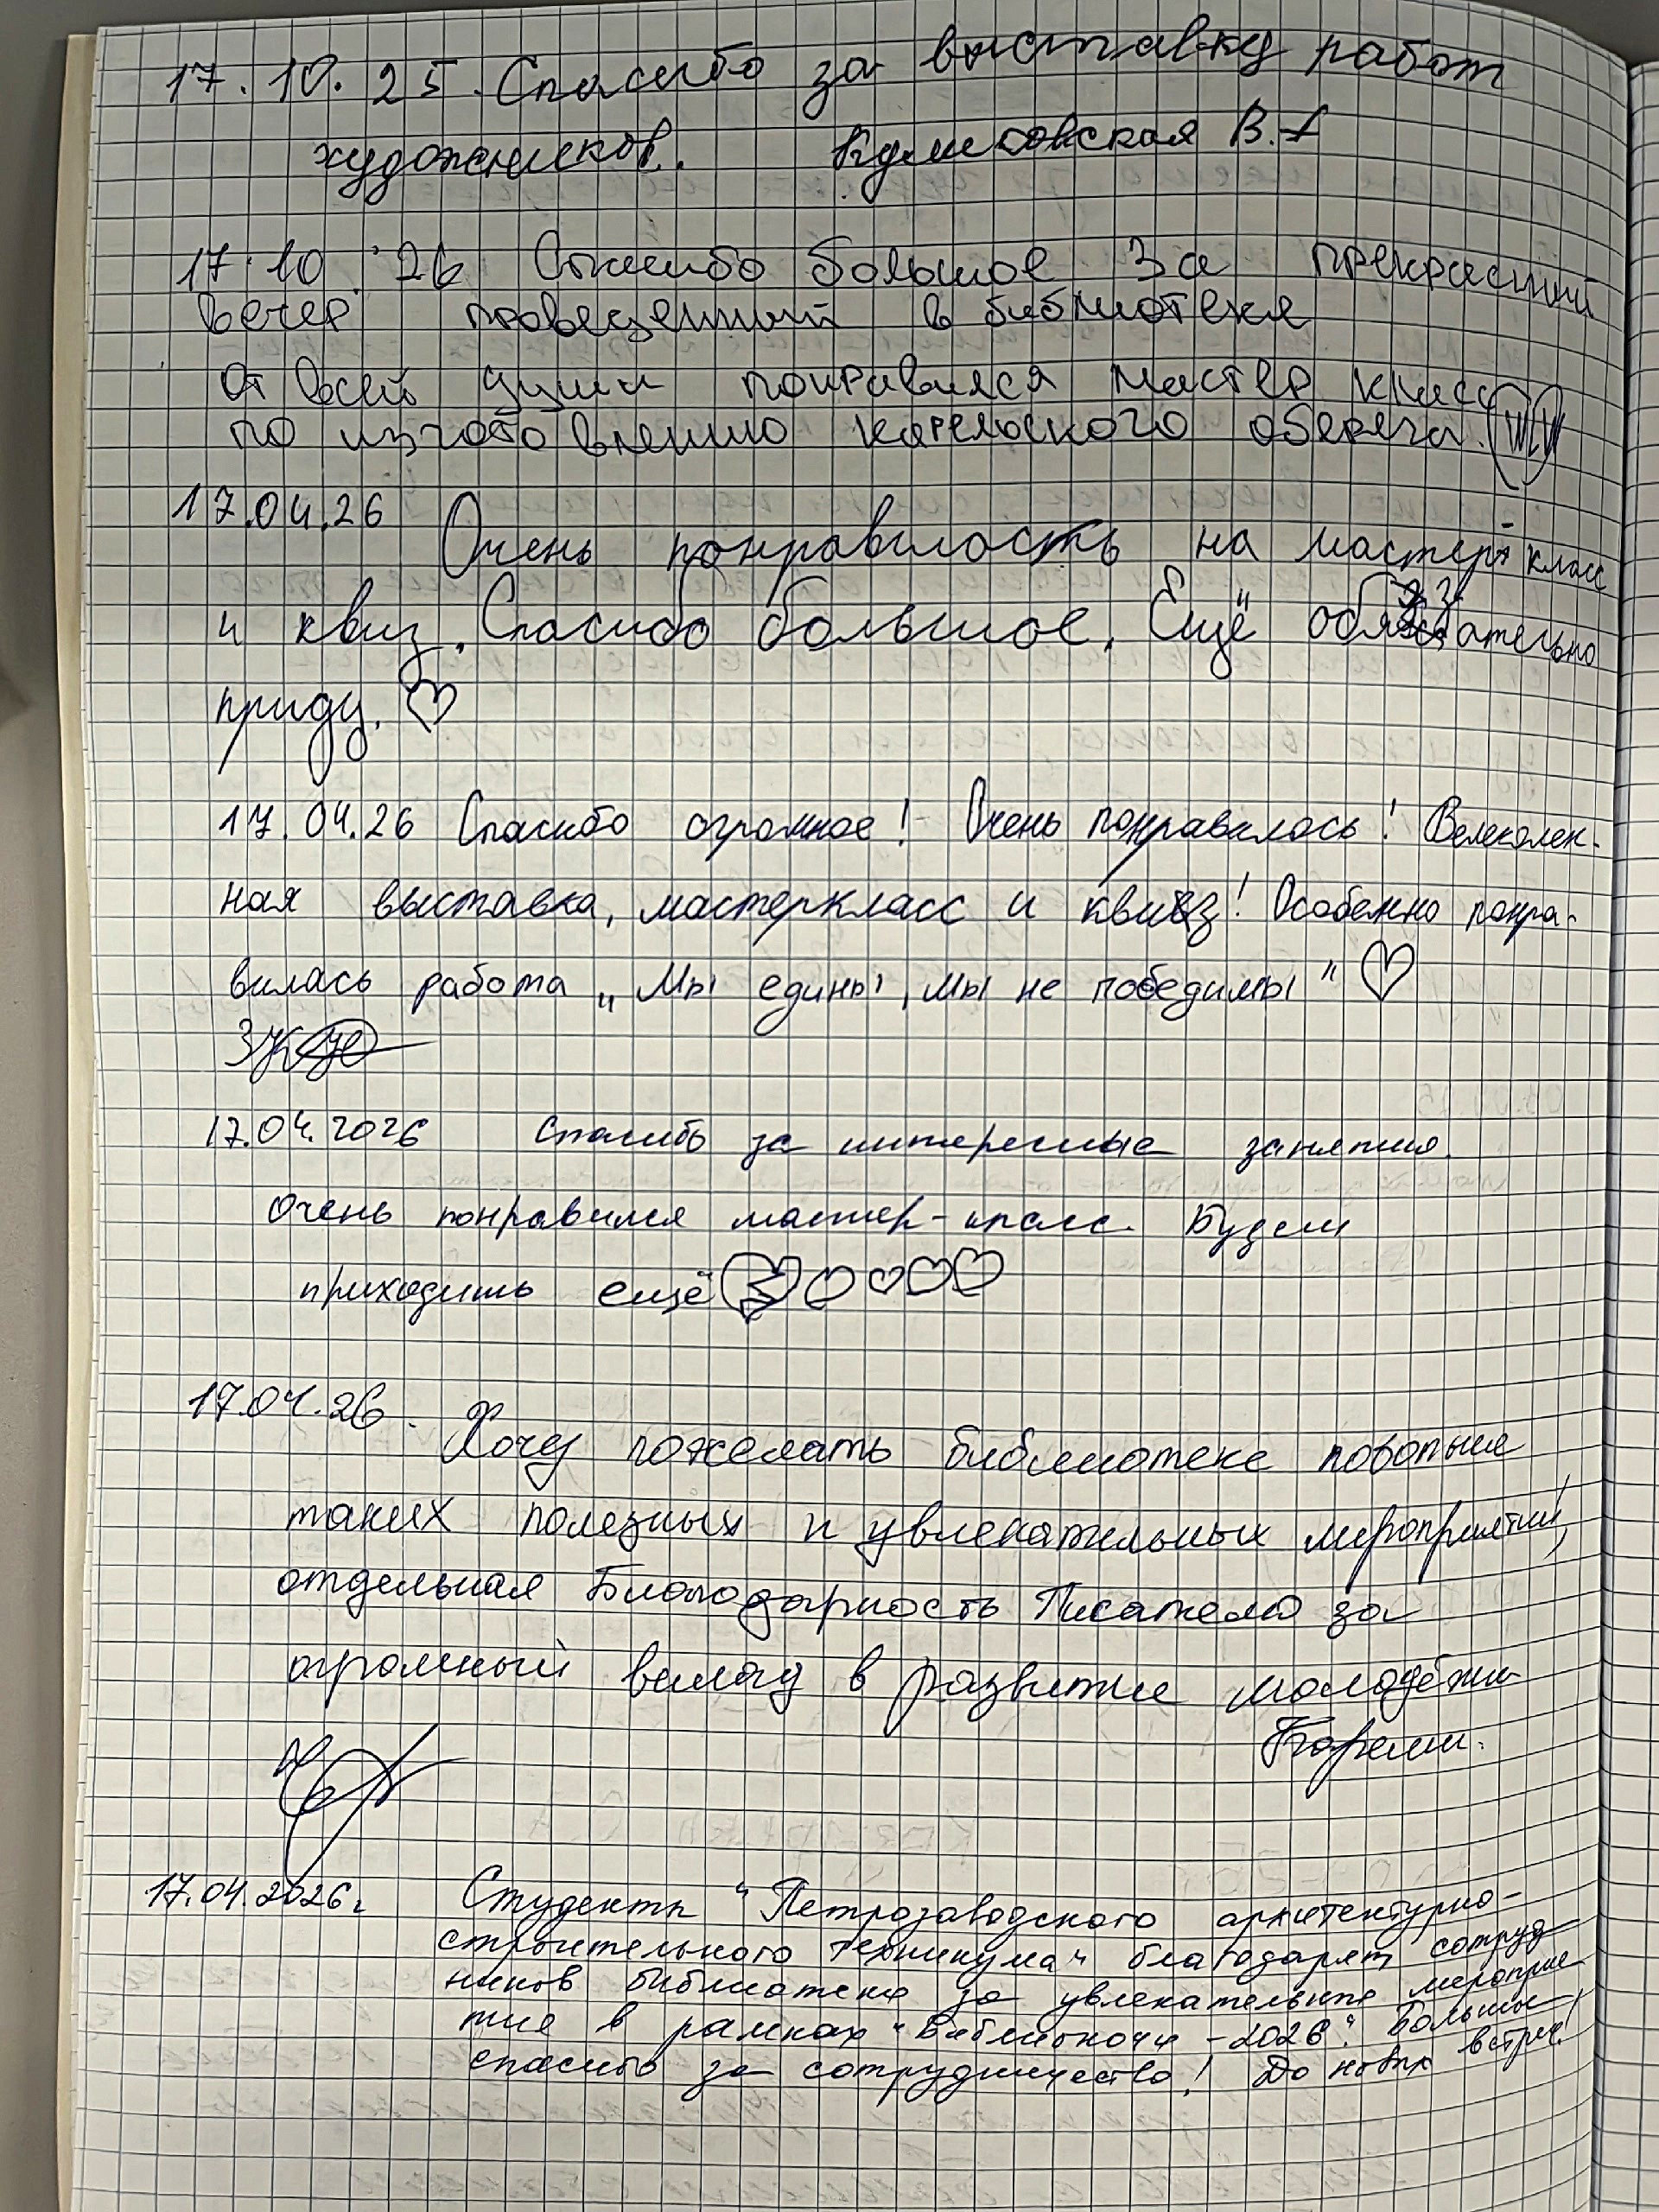 17.10.25. Спасибо за выставку работ
художников. Куликовская В.А
17.10.26 Спасибо большое За прекрасный
вечер проведенный в библиотеке
От всей души понравился мастер класс
по изготовлению карельского оберега.
17.04.26 Очень понравилость на мастер-класс
и квиз. Спасибо большое. Ещё обязательно
приду. ♡
17.04.26 Спасибо огромное! Очень понравилось! Велеколен-
ная выставка, мастеркласс и квиз! Особенно понра-
вилась работа „Мы едины, мы не победимы" ♡
17.04.2026 Спасибо за интересные занятия.
Очень понравился мастер-класс. Будем
приходить ещё ♡♡♡♡♡
17.04.26. Хочу пожелать библиотеке побольше
таких полезных и увлекательных мероприятий,
отдельная Благодарность Писателю за
огромный вклад в развитие молодёжи
Карелии.
17.04.2026г Студенты "Петрозаводского архитектурно-
строительного техникума" благодарят сотруд
ников библиотеки за увлекательное мероприя
тие в рамках "Библионочи - 2026". Большое
спасибо за сотрудничество! До новых встреч!